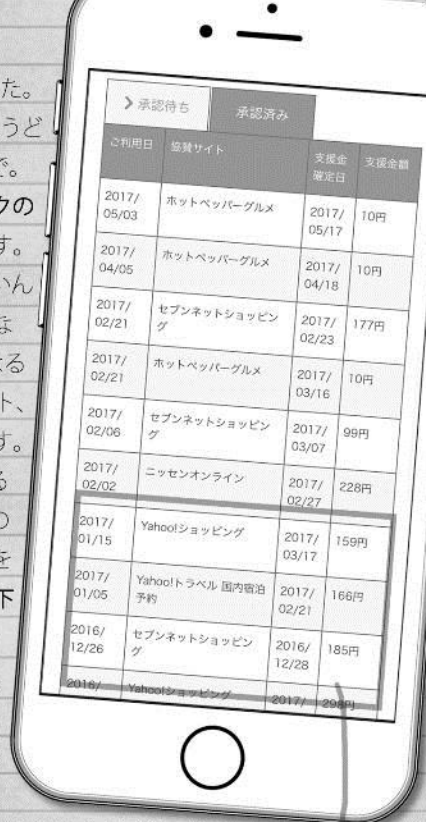 た。
うど
で。
クの
す。
いん
な
る
ト、
す。
る
の
を
下
承認待ち 承認済み
ご利用日 協賛サイト 支援金確定日 支援金額
2017/05/03 ホットペッパーグルメ 2017/05/17 10円
2017/04/05 ホットペッパーグルメ 2017/04/18 10円
2017/02/21 セブンネットショッピング 2017/02/23 177円
2017/02/21 ホットペッパーグルメ 2017/03/16 10円
2017/02/06 セブンネットショッピング 2017/03/07 99円
2017/02/02 ニッセンオンライン 2017/02/27 228円
2017/01/15 Yahoo!ショッピング 2017/03/17 159円
2017/01/05 Yahoo!トラベル 国内宿泊予約 2017/02/21 166円
2016/12/26 セブンネットショッピング 2016/12/28 185円
2016/ Yahoo!ショッピング 2017/ 298円